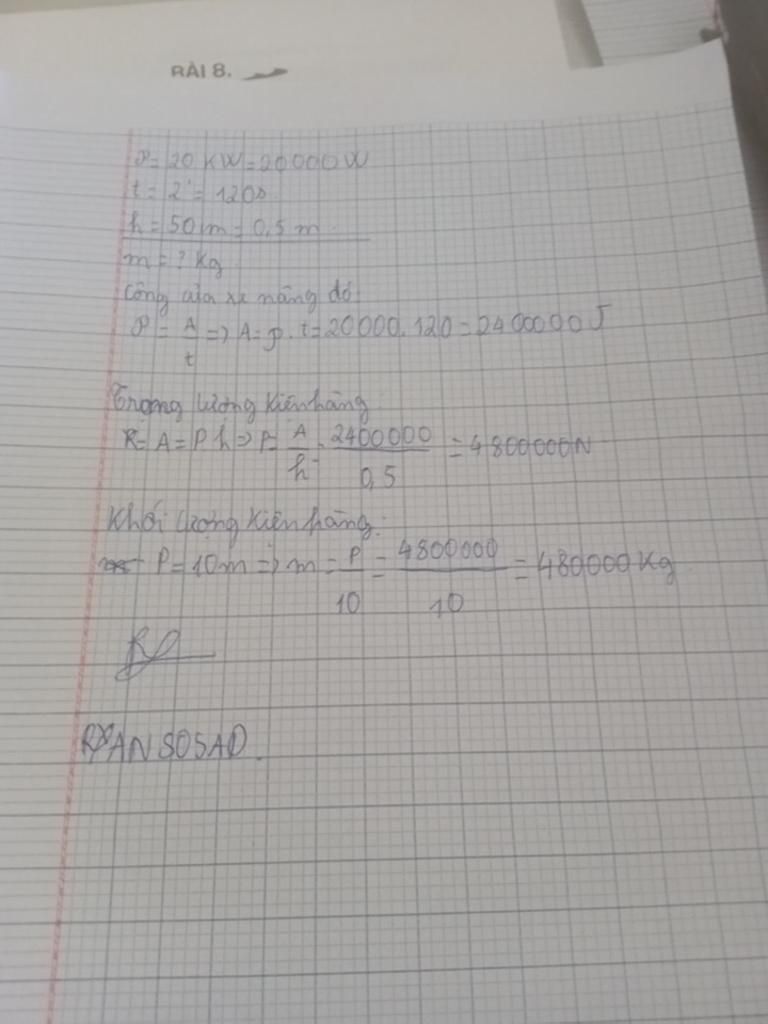 BÀI 8.
P = 20 KW = 20000W
t = 2' = 120s
h = 50 m = 0,5 m
m = ? Kg
Công của xe nâng đó
P = A/t => A = P . t = 20000. 120 = 2400000 J
Trọng lượng kiện hàng
A = P h => P = A/h = 2400000/0,5 = 4800000N
Khối lượng kiện hàng:
P = 10m => m = P/10 = 4800000/10 = 480000 Kg
RYAN SOSAD.